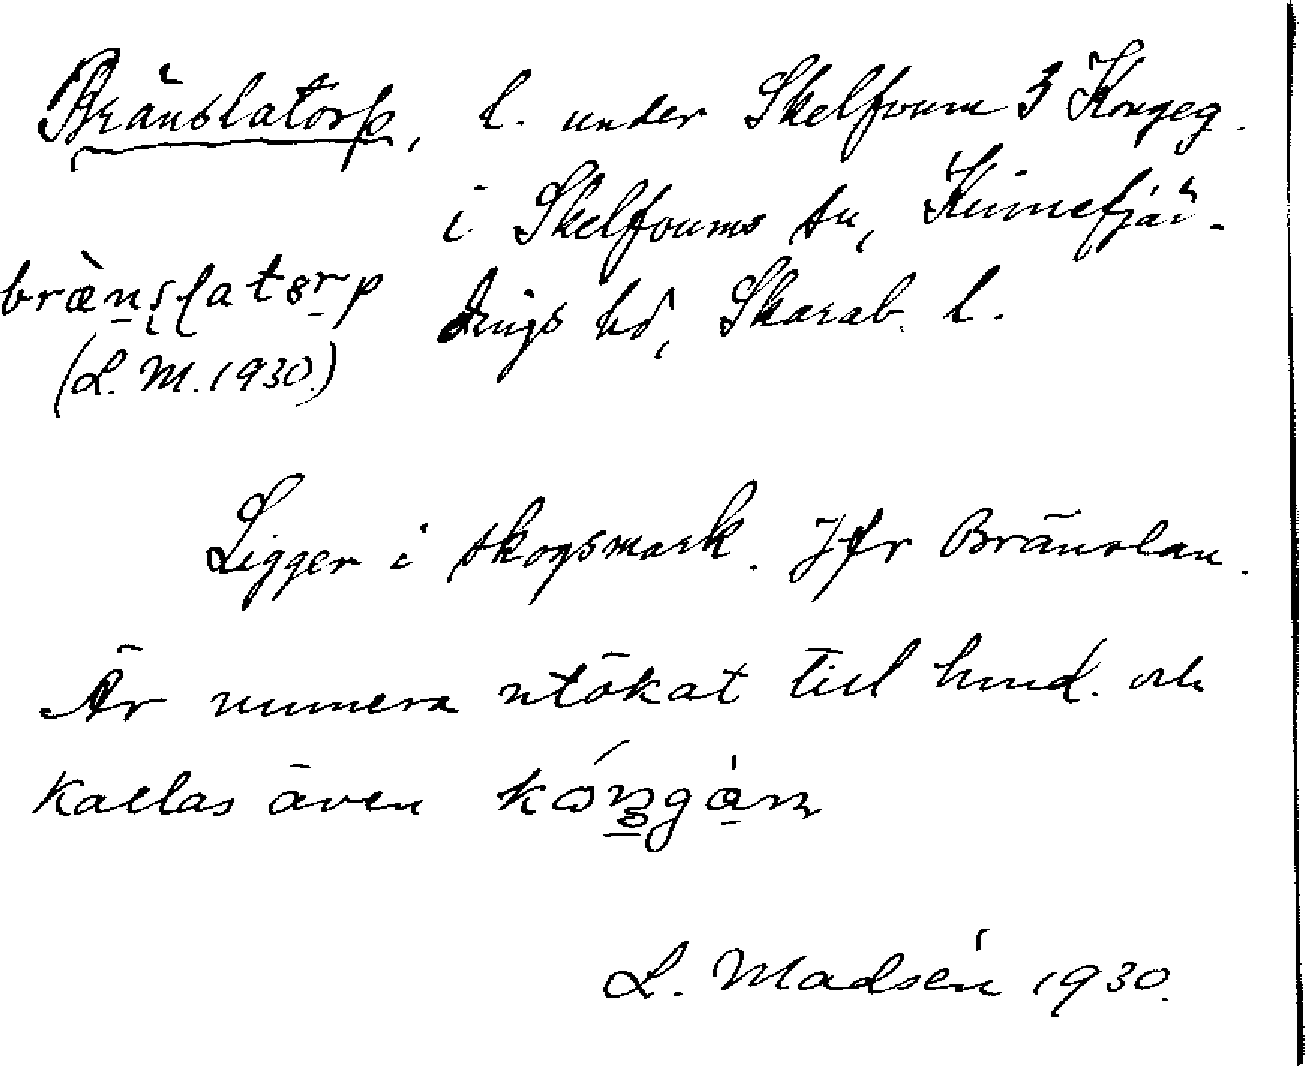 Bränslatorp, l. under Skelfoum 3 Kongeg.
i Skelfoums sn, Kinnefjär-
dings hd, Skarab. l.
brànslatorp
(L. M. 1930.)
Ligger i skogsmark. Jfr Bränslan.
Är numera utökat till hmd. och
kallas även
L. Madsén 1930.